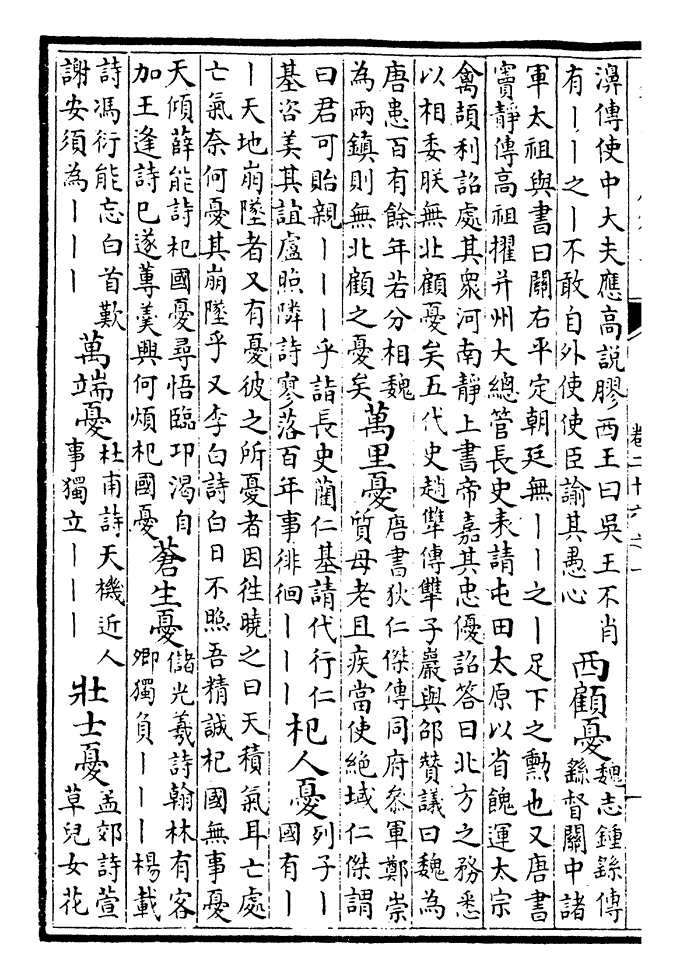 濞傳使中大夫應高說膠西王曰吳王不肖
有丨丨之丨不敢自外使使臣諭其愚心
西顧憂
魏志鍾繇傳
繇督關中諸
軍太祖與書曰關右平定朝廷無丨丨之丨足下之勳也又唐書
竇靜傳高祖擢并州大總管長史表請屯田太原以省餽運太宗
禽頡利詔處其衆河南靜上書帝嘉其忠優詔答曰北方之務悉
以相委朕無北顧憂矣五代史趙犨傳犨子巖與邵贊議曰魏為
唐患百有餘年若分相魏
為兩鎮則無北顧之憂矣
萬里憂
唐書狄仁傑傳同府參軍鄭崇
質母老且疾當使絶域仁傑謂
曰君可貽親丨丨丨乎詣長史藺仁基請代行仁
基咨美其誼盧照隣詩寥落百年事徘徊丨丨丨
杞人憂
列子丨
國有丨
丨天地崩墜者又有憂彼之所憂者因往曉之曰天積氣耳亡處
亡氣奈何憂其崩墜乎又李白詩白日不照吾精誠杞國無事憂
天傾薛能詩杞國憂尋悟臨邛渴自
加王逢詩已遂蓴羹興何煩杞國憂
蒼生憂
儲光羲詩翰林有客
卿獨負丨丨丨楊載
詩馮衍能忘白首歎
謝安須為丨丨丨
萬端憂
杜甫詩天機近人
事獨立丨丨丨
壯士憂
孟郊詩萱
草兒女花